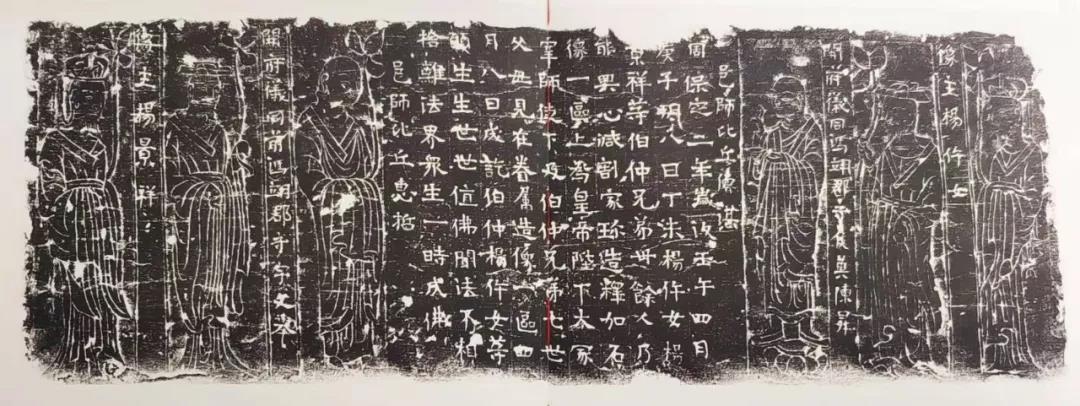 像主楊仵女
開府儀同馮翊郡守侯莫陳昇
邑師比丘
周保定二年歲次壬午四月
庚子朔八日丁未楊仵女楊
景祥等伯仲兄弟卅餘人乃
能興心減割家珎造釋加石
像一區上為皇帝陛下太冢
宰師徒下及伯仲兄弟七世
父母見在眷属造像一區四
月八日成訖伯仲楊仵女等
願生生世世值佛聞法不相
捨離法界衆生一時成佛
邑師比丘惠哲
開府儀同前馮翊郡守宇文
像主楊景祥